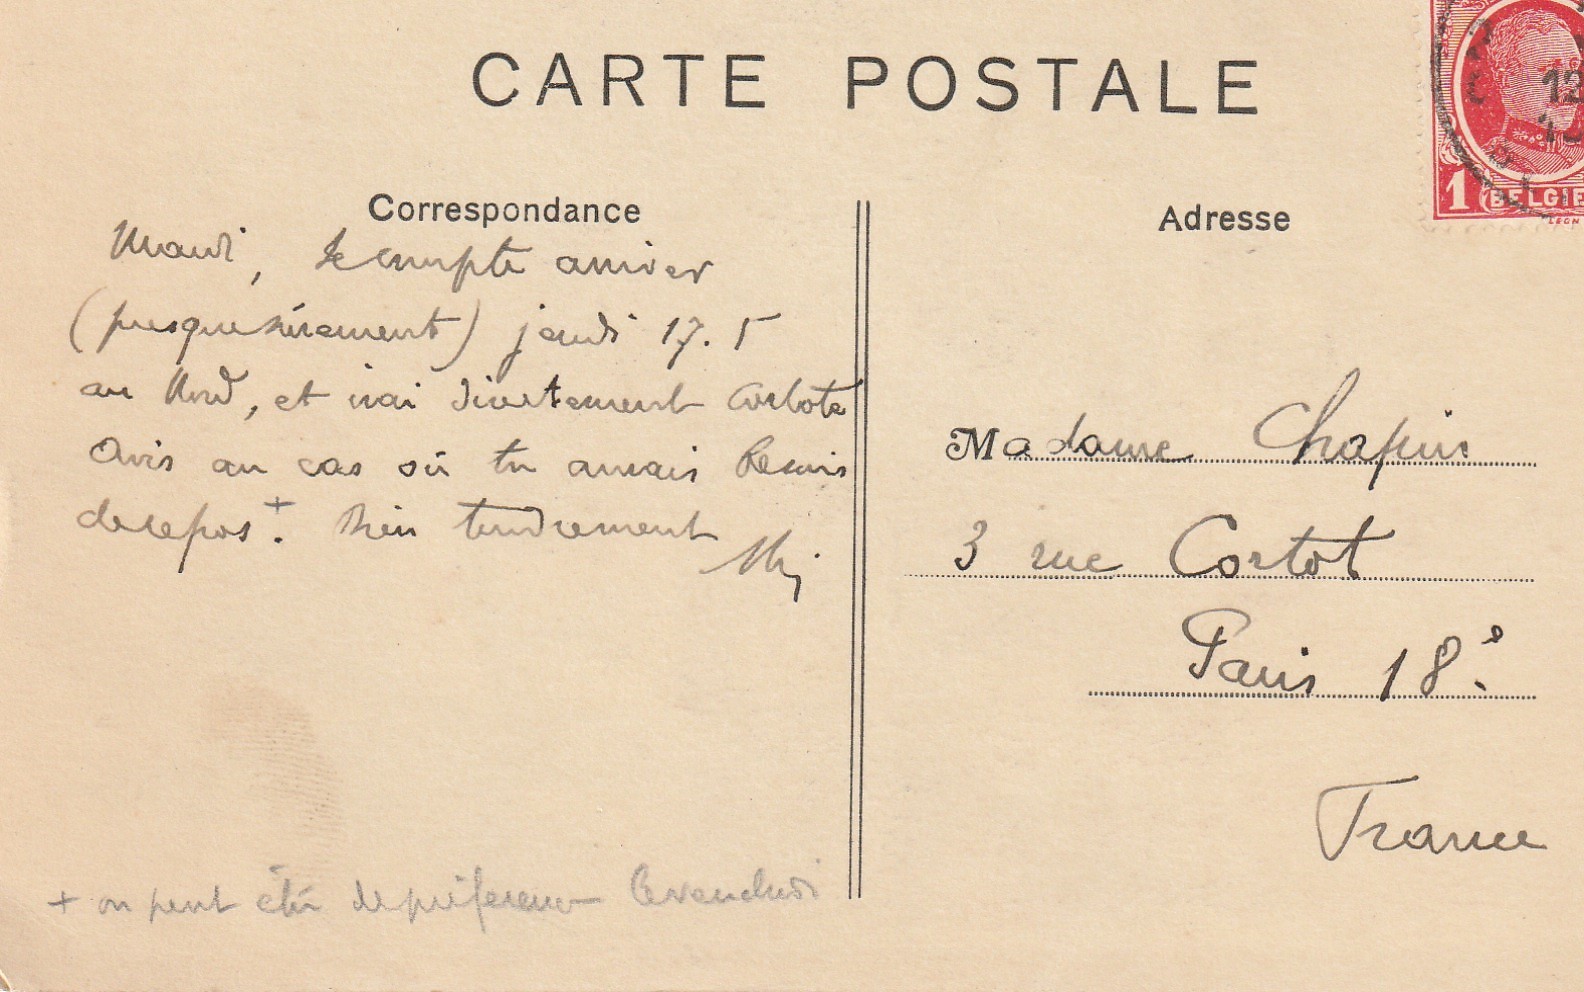 CARTE POSTALE
Correspondance
Adresse
1 BELGIE
12
Mardi, Je compte arriver
(presque sûrement) jeudi 17.5
au Nord, et irai directement Cortot
avis au cas où tu aurais besoin
de repos +. Bien tendrement
Madame Chapin
3 rue Cortot
Paris 18e
France
+ ou peut être de préférence le vendredi